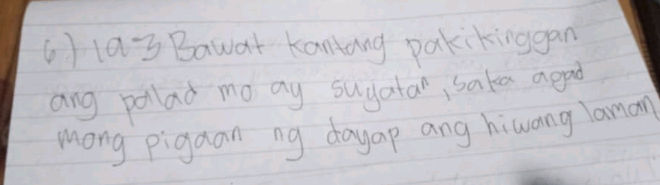 6) 1a3 Bawat kantang pakikinggan
ang palad mo ay sugatan, saka agad
mong pigaan ng dayap ang hiwang laman